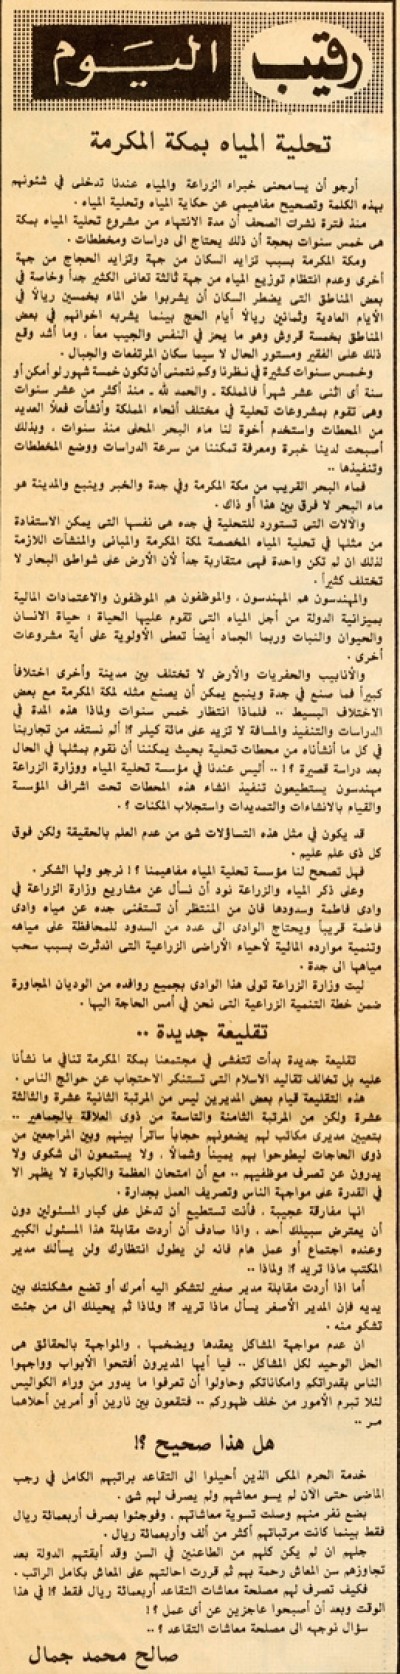 رقيب اليوم
تحلية المياه بمكة المكرمة
أرجو أن يسامحنى خبراء الزراعة والمياه عندنا تدخلى في شئونهم
بهذه الكلمة وتصحيح مفاهيمى عن حكاية المياه وتحلية المياه .
منذ فترة نشرت الصحف أن مدة الانتهاء من مشروع تحلية المياه بمكة
هى خمس سنوات بحجة أن ذلك يحتاج الى دراسات ومخططات .
ومكة المكرمة بسبب تزايد السكان من جهة وتزايد الحجاج من جهة
أخرى وعدم انتظام توزيع المياه من جهة ثالثة تعانى الكثير جداً وخاصة في
بعض المناطق التى يضطر السكان أن يشربوا طن الماء بخمسين ريالاً في
الأيام العادية وثمانين ريالاً أيام الحج بينما يشربه اخوانهم في بعض
المناطق بخمسة قروش وهو ما يحز في النفس والجيب معاً ، وما أشد وقع
ذلك على الفقير ومستور الحال لا سيما سكان المرتفعات والجبال .
وخمس سنوات كثيرة في نظرنا وكم نتمنى أن تكون خمسة شهور لو أمكن أو
سنة أى اثنى عشر شهراً فالمملكة ـ والحمد لله ـ منذ أكثر من عشر سنوات
وهى تقوم بمشروعات تحلية في مختلف أنحاء المملكة وأنشأت فعلاً العديد
من المحطات واستخدم أخوة لنا ماء البحر المحلى منذ سنوات ، وبذلك
أصبحت لدينا خبرة ومعرفة تمكننا من سرعة الدراسات ووضع المخططات
وتنفيذها ..
فماء البحر القريب من مكة المكرمة وفي جدة والخبر وينبع والمدينة هو
ماء البحر لا فرق بين هذا أو ذاك .
والآلات التى تستورد للتحلية في جده هى نفسها التى يمكن الاستفادة
من مثلها في تحلية المياه المخصصة لمكة المكرمة والمبانى والمنشآت اللازمة
لذلك ان لم تكن واحدة فهى متقاربة جداً لأن الأرض على شواطق البحار لا
تختلف كثيراً .
والمهندسون هم المهندسون ، والموظفون هم الموظفون والاعتمادات المالية
بميزانية الدولة من أجل المياه التى تقوم عليها الحياة : حياة الانسان
والحيوان والنبات وربما الجماد أيضاً تعطى الأولوية على أية مشروعات
أخرى .
والأنابيب والحفريات والأرض لا تختلف بين مدينة وأخرى اختلافاً
كبيراً فما صنع في جدة وينبع يمكن أن يصنع مثله لمكة المكرمة مع بعض
الاختلاف البسيط .. فلماذا انتظار خمس سنوات ولماذا هذه المدة في
الدراسات والتنفيذ والمسافة لا تزيد على مائة كيلى ؟! ألم نستفد من تجاربنا
في كل ما أنشأناه من محطات تحلية بحيث يمكننا أن نقوم بمثلها في الحال
بعد دراسة قصيرة ؟! .. أليس عندنا في مؤسسة تحلية المياه ووزارة الزراعة
مهندسون يستطيعون تنفيذ انشاء هذه المحطات تحت اشراف المؤسسة
والقيام بالانشاءات والتمديدات واستجلاب المكنات ؟ .
قد يكون في مثل هذه التساؤلات شئ من عدم العلم بالحقيقة ولكن فوق
كل ذى علم عليم .
فهل تصحح لنا مؤسسة تحلية المياه مفاهيمنا ؟! نرجو ولها الشكر .
وعلى ذكر المياه والزراعة نود أن نسأل عن مشاريع وزارة الزراعة في
وادى فاطمة وسدودها فان من المنتظر أن تستغنى جده عن مياه وادى
فاطمة قريباً ويحتاج الوادى الى عدد من السدود للمحافظة على مياهه
وتنمية موارده المالية لأحياء الأراضى الزراعية التى اندثرت بسبب سحب
مياهها الى جدة .
ليت وزارة الزراعة تولى هذا الوادى بجميع روافده من الوديان المجاورة
ضمن خطة التنمية الزراعية التى نحن في أمس الحاجة اليها .
تقليعة جديدة ..
تقليعة جديدة بدأت تتفشى في مجتمعنا بمكة المكرمة تنافي ما نشأنا
عليه بل تخالف تقاليد الاسلام التى تستنكر الاحتجاب عن حوائج الناس .
هذه التقليعة قيام بعض المديرين ليس من المرتبة الثانية عشرة والثالثة
عشرة ولكن من المرتبة الثامنة والتاسعة من ذوى العلاقة بالجماهير ..
بتعيين مديرى مكاتب لهم يضعونهم حجاباً ساتراً بينهم وبين المراجعين من
ذوى الحاجات ليطوحوا بهم يميناً وشمالاً ، ولا يستمعون الى شكوى ولا
يدرون عن تصرف موظفيهم .. مع أن امتحان العظمة والكبارة لا يظهر الا
في القدرة على مواجهة الناس وتصريف العمل بجدارة .
انها مفارقة عجيبة ، فأنت تستطيع أن تدخل على كبار المسئولين دون
أن يعترض سبيلك أحد ، واذا صادف أن أردت مقابلة هذا المسئول الكبير
وعنده اجتماع أو عمل هام فانه لن يطول انتظارك ولن يسألك مدير
المكتب ماذا تريد ؟! ولماذا ..
أما اذا أردت مقابلة مدير صغير لتشكو اليه أمرك أو تضع مشكلتك بين
يديه فإن المدير الأصغر يسأل ماذا تريد ؟! ولماذا ثم يحيلك الى من جئت
تشكو منه .
ان عدم مواجهة المشاكل يعقدها ويضخمها ، والمواجهة بالحقائق هى
الحل الوحيد لكل المشاكل .. فيا أيها المديرون أفتحوا الأبواب وواجهوا
الناس بقدراتكم وامكاناتكم وحاولوا أن تعرفوا ما يدور من وراء الكواليس
لئلا تبرم الأمور من خلف ظهوركم .. فتقعون بين نارين أو أمرين أحلاهما
مـر ..
هل هذا صحيح ؟!
خدمة الحرم المكى الذين أحيلوا الى التقاعد براتبهم الكامل في رجب
الماضى حتى الآن لم يسو معاشهم ولم يصرف لهم شئ .
بضع نفر منهم وصلت تسوية معاشاتهم ، وفوجئوا بصرف أربعمائة ريال
فقط بينما كانت مرتباتهم أكثر من ألف وأربعمائة ريال .
جلهم ان لم يكن كلهم من الطاعنين في السن وقد أبقتهم الدولة بعد
تجاوزهم سن المعاش رحمة بهم ثم قررت احالتهم على المعاش بكامل الراتب .
فكيف تصرف لهم مصلحة معاشات التقاعد أربعمائة ريال فقط ؟! في هذا
الوقت وبعد أن أصبحوا عاجزين عن أى عمل ؟!
سؤال نوجهه الى مصلحة معاشات التقاعد ؟ ..
صالح محمد جمال